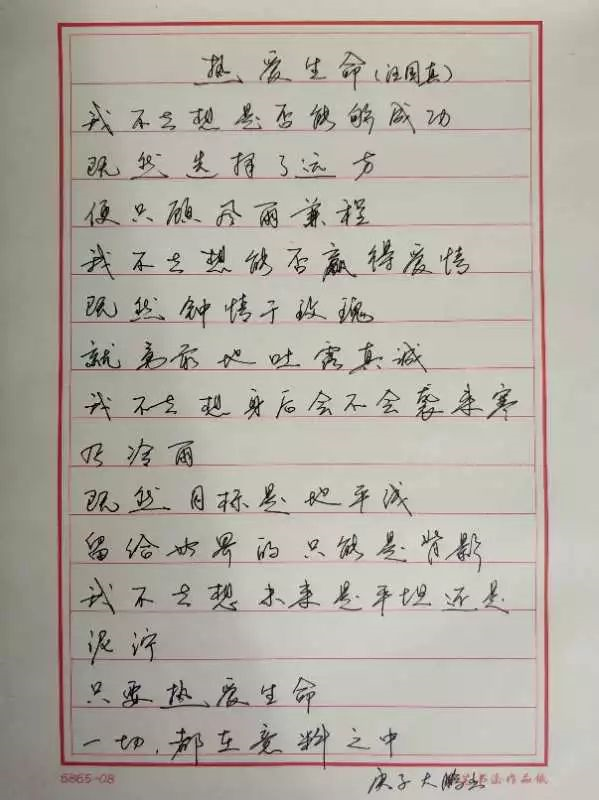 热爱生命(汪国真)
我不去想是否能够成功
既然选择了远方
便只顾风雨兼程
我不去想能否赢得爱情
既然钟情于玫瑰
就勇敢地吐露真诚
我不去想身后会不会袭来寒
风冷雨
既然目标是地平线
留给世界的只能是背影
我不去想未来是平坦还是
泥泞
只要热爱生命
一切,都在意料之中
6865-08
庚子大鹏
书法作品纸